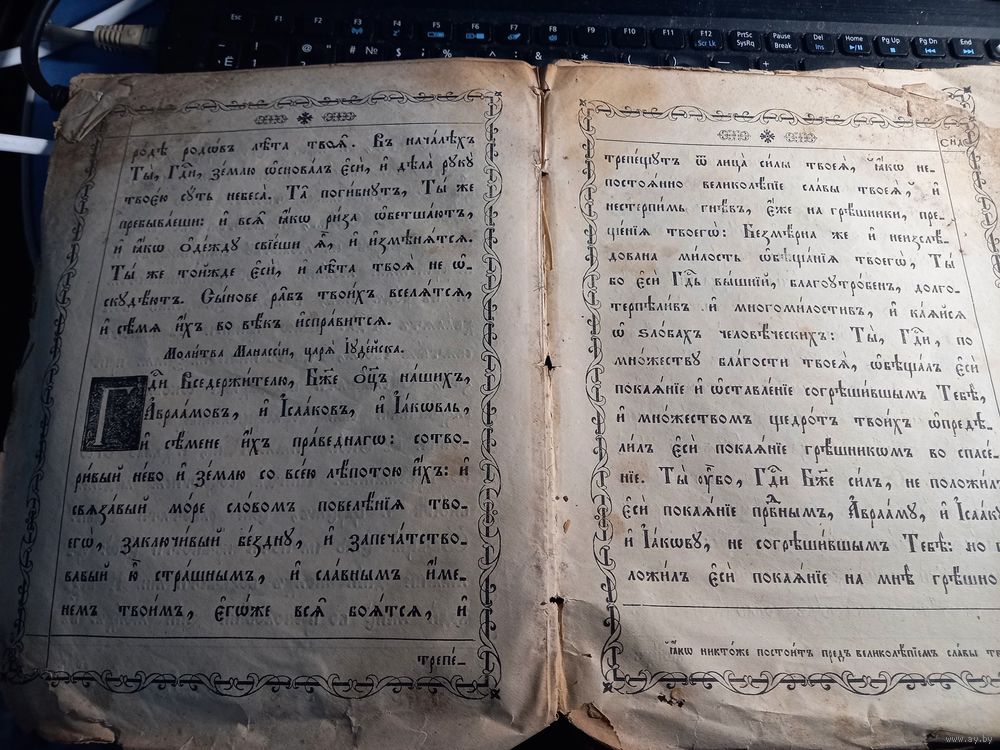 ро́дѣ родѡ́въ лѣ̑та твоѧ̑. Въ нача́лѣхъ
Ты̀, Гдⷭ҇и, зе́млю ѡ҆снова́лъ є҆сѝ, и҆ дѣла̀ рꙋкꙋ̀
твоє́ю сꙋ́ть небеса̀. Та̑ поги́бнꙋтъ, Ты́ же
пребыва́еши: и҆ всѧ̑ ꙗ҆́кѡ ри́за ѡ҆бетша́ютъ,
и҆ ꙗ҆́кѡ ѻ҆де́ждꙋ свїе́ши ѧ҆̀, и҆ и҆змѣнѧ́тсѧ.
Ты́ же то́йжде є҆сѝ, и҆ лѣ̑та твоѧ̑ не ѡ҆-
скꙋдѣ́ютъ. Сы́нове ра̑бъ твои́хъ вселѧ́тсѧ,
и҆ сѣ́мѧ и҆́хъ во вѣ́къ и҆спра́витсѧ.
Моли́тва Манассі́и, царѧ̀ І҆ꙋде́йска.
Гдⷭ҇и Вседержи́телю, Бж҃е ѻ҆ц҃ъ на́шихъ,
А҆враа́мовъ, и҆ І҆саа́ковъ, и҆ І҆а́кѡвль,
и҆ сѣ́мене и҆́хъ пра́веднагѡ: сотво-
ри́вый не́бо и҆ зе́млю со все́ю лѣ́потою и҆́хъ: и҆
свѧза́вый мо́ре сло́вомъ повелѣ́нїѧ тво-
егѡ̀, заключи́вый бе́зднꙋ, и҆ запеча́тство-
вавый ю҆̀ стра́шнымъ, и҆ сла́внымъ и҆́ме-
немъ твои́мъ, є҆гѡ́же всѧ̑ боѧ́тсѧ, и҆
трепе́-
трепе́щꙋтъ ѿ лица̀ си́лы твоеѧ̀, ꙗ҆́кѡ не-
постоѧ́нно великолѣ́пїе сла́вы твоеѧ̀, и҆
нестерпи́мь гнѣ́въ, є҆́же на грѣ́шники, пре-
ще́нїѧ твоегѡ̀: Безмѣ́рна же и҆ неизслѣ́-
дована ми́лость ѡ҆бѣща́нїѧ твоегѡ̀, Ты́
бо є҆сѝ Гдⷭ҇ь вы́шнїй, благоꙋтро́бенъ, долго-
терпѣли́въ и҆ многоми́лостивъ, и҆ ка́ѧйсѧ
ѡ҆ ѕло́бахъ человѣ́ческихъ: Ты̀, Гдⷭ҇и, по
мно́жествꙋ бла́гости твоеѧ̀, ѡ҆бѣща́лъ є҆сѝ
покаѧ́нїе и҆ ѡ҆ставле́нїе согрѣши́вшымъ Тебѣ̀,
и҆ мно́жествомъ щедро́тъ твои́хъ ѡ҆предѣ-
ли́лъ є҆сѝ покаѧ́нїе грѣ́шникѡмъ во спасе́-
нїе. Ты̀ ᲂу҆̀бо, Гдⷭ҇и Бж҃е си́лъ, не положи́лъ
є҆сѝ покаѧ́нїе првⷣнымъ, А҆враа́мꙋ, и҆ І҆саа́кꙋ
и҆ І҆а́кѡвꙋ, не согрѣши́вшымъ Тебѣ̀: но
ложи́лъ є҆сѝ покаѧ́нїе на мнѣ̀ грѣ́шно
ꙗ҆́кѡ никто́же постои́тъ пред̾ великолѣ́пїемъ сла́вы
www.ay.by